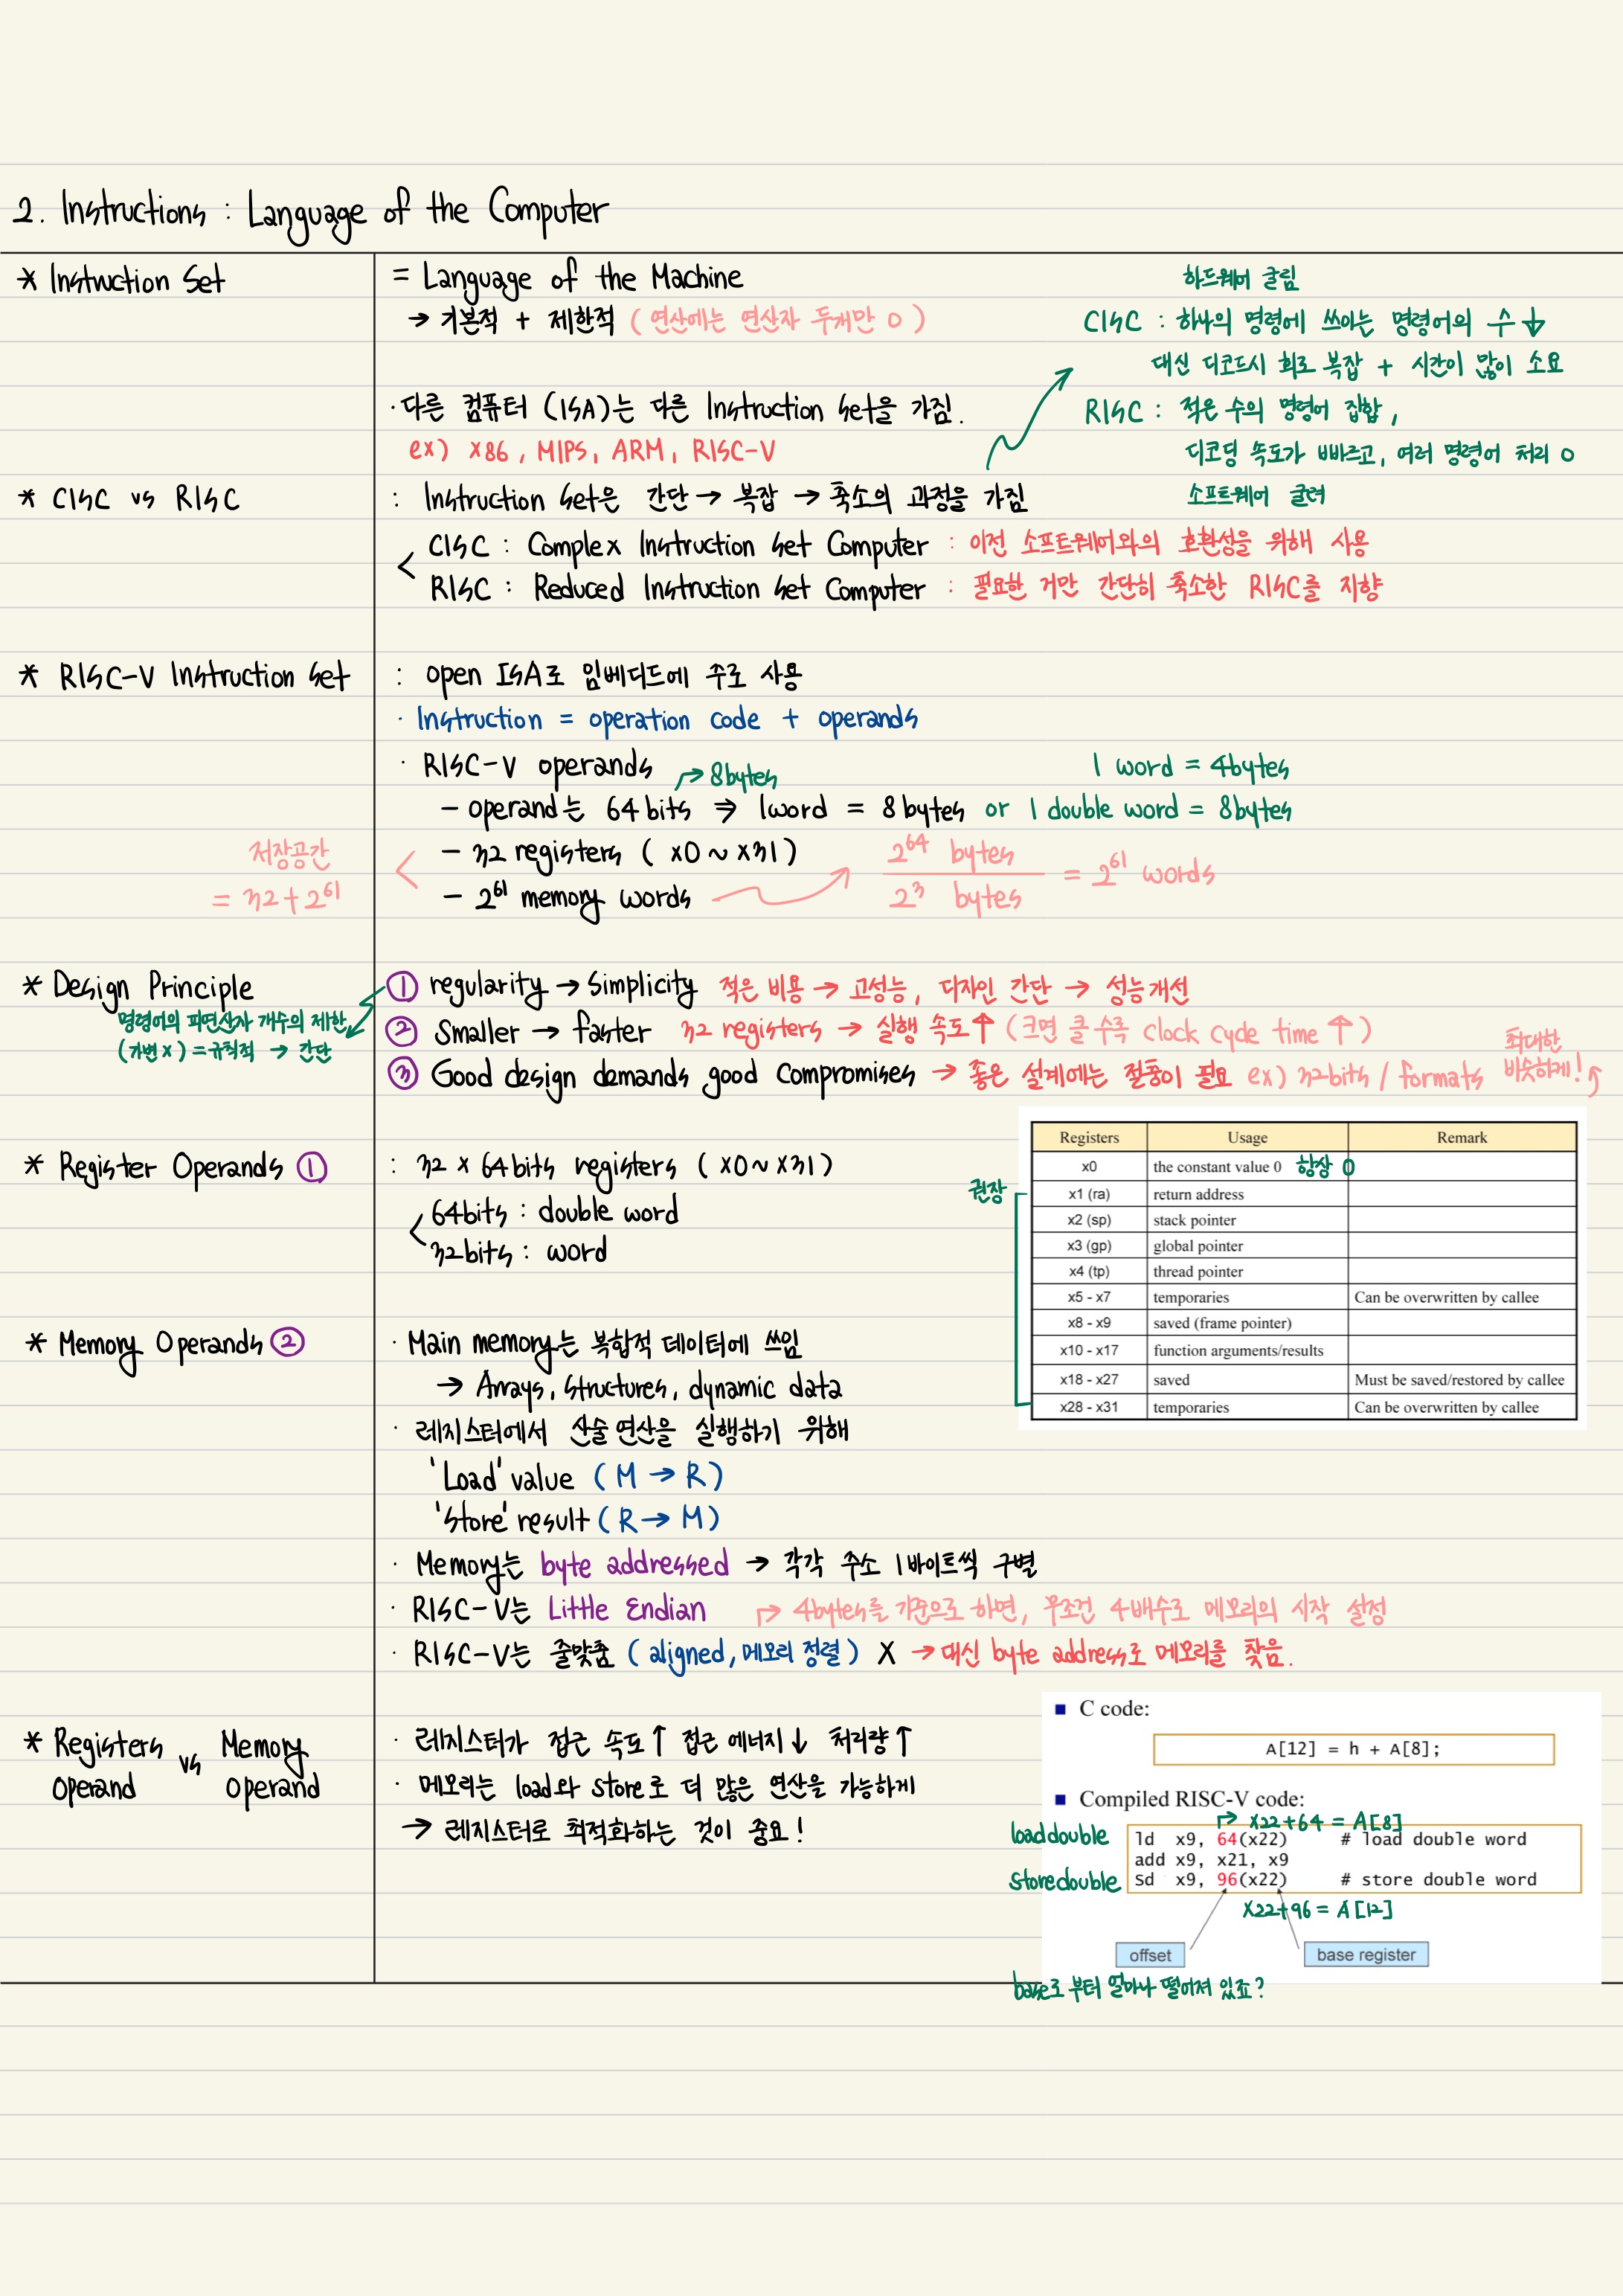 2. Instructions : Language of the Computer
* Instruction Set
= Language of the Machine
→ 기본적 + 제한적 (연산에는 연산자 두개만 O)
· 다른 컴퓨터 (ISA)는 다른 Instruction Set을 가짐.
ex) x86, MIPS, ARM, RISC-V
하드웨어 굴림
CISC : 하나의 명령에 쓰이는 명령어의 수 ↓
대신 디코드시 회로 복잡 + 시간이 많이 소요
RISC : 적은 수의 명령어 집합,
디코딩 속도가 빠르고, 여러 명령어 처리 O
소프트웨어 굴려
* CISC vs RISC
: Instruction Set은 간단 → 복잡 → 축소의 과정을 가짐
CISC : Complex Instruction Set Computer : 이전 소프트웨어와의 호환성을 위해 사용
RISC : Reduced Instruction Set Computer : 필요한 거만 간단히 축소한 RISC를 지향
* RISC-V Instruction Set
: open ISA로 임베디드에 주로 사용
· Instruction = operation code + operands
· RISC-V operands
→ 8bytes
1 word = 4bytes
- operand는 64 bits ⇒ 1word = 8 bytes or 1 double word = 8bytes
- 32 registers ( x0 ~ x31 )
- 2^61 memory words → 2^64 bytes / 2^3 bytes = 2^61 words
저장공간
= 32 + 2^61
* Design Principle
명령어의 피연산자 개수의 제한
(가변 x) = 규칙적 → 간단
① regularity → Simplicity 적은 비용 → 고성능, 디자인 간단 → 성능개선
② Smaller → faster 32 registers → 실행 속도 ↑ (크면 클수록 clock cycle time ↑)
③ Good design demands good compromises → 좋은 설계에는 절충이 필요 ex) 32bits / formats
최대한
비슷하게!
* Register Operands ①
: 32 x 64bits registers ( x0 ~ x31 )
64bits : double word
32bits : word
권장
Registers Usage Remark
x0 the constant value 0 항상 0
x1 (ra) return address
x2 (sp) stack pointer
x3 (gp) global pointer
x4 (tp) thread pointer
x5 - x7 temporaries Can be overwritten by callee
x8 - x9 saved (frame pointer)
x10 - x17 function arguments/results
x18 - x27 saved Must be saved/restored by callee
x28 - x31 temporaries Can be overwritten by callee
* Memory Operands ②
· Main memory는 복합적 데이터에 쓰임
→ Arrays, structures, dynamic data
· 레지스터에서 산술 연산을 실행하기 위해
'Load' value ( M → R )
'Store' result ( R → M )
· Memory는 byte addressed → 각각 주소 1바이트씩 구별
· RISC-V는 Little Endian
→ 4bytes를 기준으로 하면, 무조건 4배수로 메모리의 시작 설정
· RISC-V는 줄맞춤 (aligned, 메모리 정렬) X → 대신 byte address로 메모리를 찾음.
* Registers operand vs Memory operand
· 레지스터가 접근 속도 ↑ 접근 에너지 ↓ 처리량 ↑
· 메모리는 load와 store로 더 많은 연산을 가능하게
→ 레지스터로 최적화하는 것이 중요!
■ C code:
A[12] = h + A[8];
■ Compiled RISC-V code:
→ x22+64 = A[8]
load double
ld x9, 64(x22) # load double word
add x9, x21, x9
store double
sd x9, 96(x22) # store double word
x22+96 = A[12]
offset
base register
base로 부터 얼마나 떨어져 있죠?